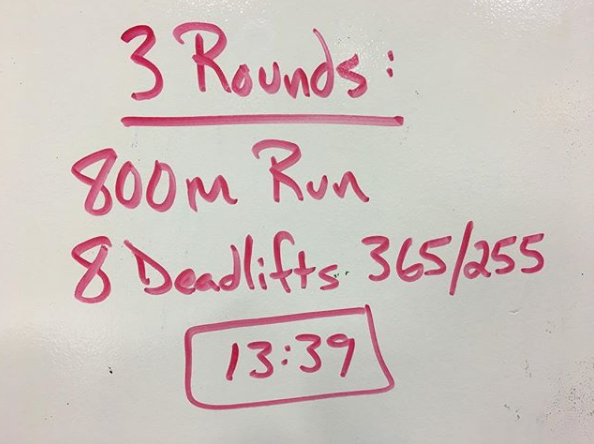 3 Rounds:
800m Run
8 Deadlifts 365/255
13:39